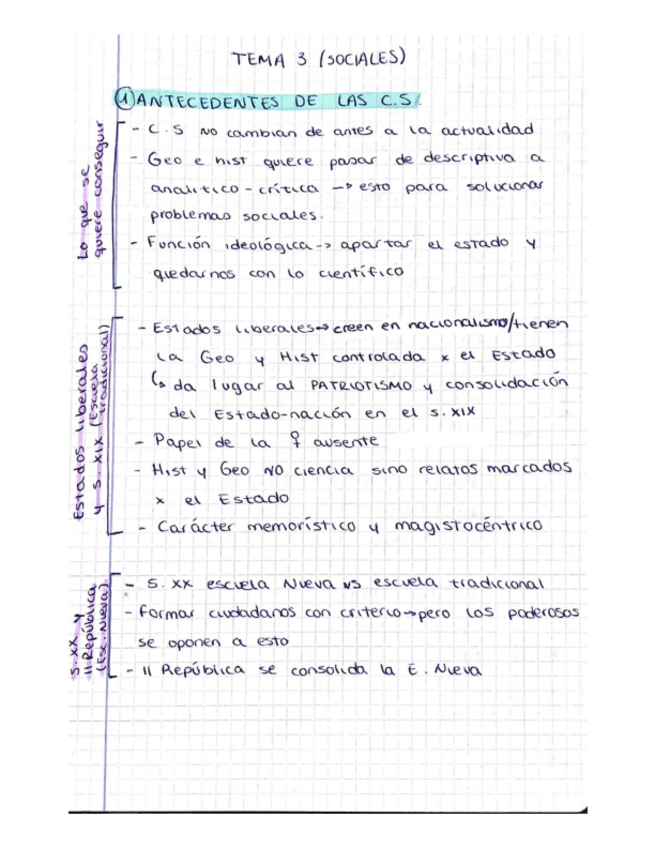 TEMA 3 (SOCIALES)
1 ANTECEDENTES DE LAS C.S.
Lo que se
quiere conseguir
- C.S NO cambian de antes a la actualidad
- Geo e hist quiere pasar de descriptiva a
analítico-crítica -> esto para solucionar
problemas sociales.
- Función ideológica -> apartar el estado y
quedarnos con lo científico
Estados liberales
y s. XIX (Escuela
tradicional)
- Estados liberales -> creen en nacionalismo/tienen
la Geo y Hist controlada x el Estado
↳ da lugar al PATRIOTISMO y consolidación
del Estado-nación en el s. XIX
- Papel de la ♀ ausente
- Hist y Geo NO ciencia sino relatos marcados
x el Estado
- Carácter memorístico y magistocéntrico
S. XX y
II República
(Esc. Nueva)
- S. XX escuela Nueva vs escuela tradicional
- formar ciudadanos con criterio -> pero los poderosos
se oponen a esto
- II República se consolida la E. Nueva